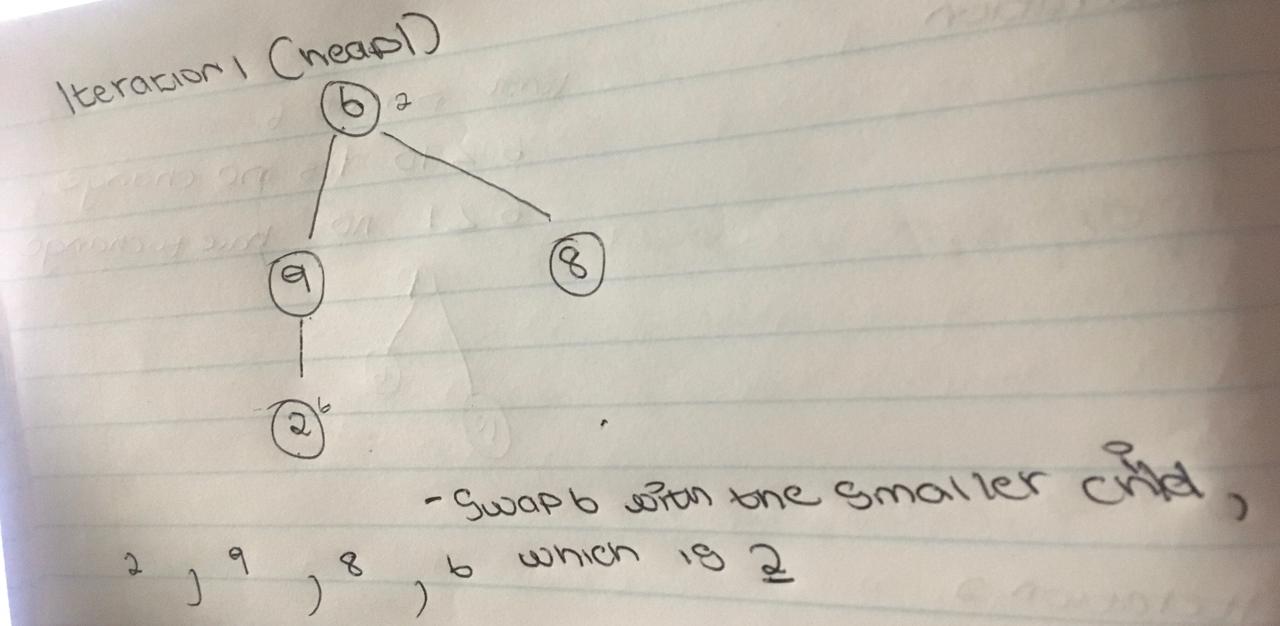 Iteration 1 (heap1)
6 2
9 8
2 6
- Swap 6 with the smaller child,
2, 9, 8, 6 which is 2